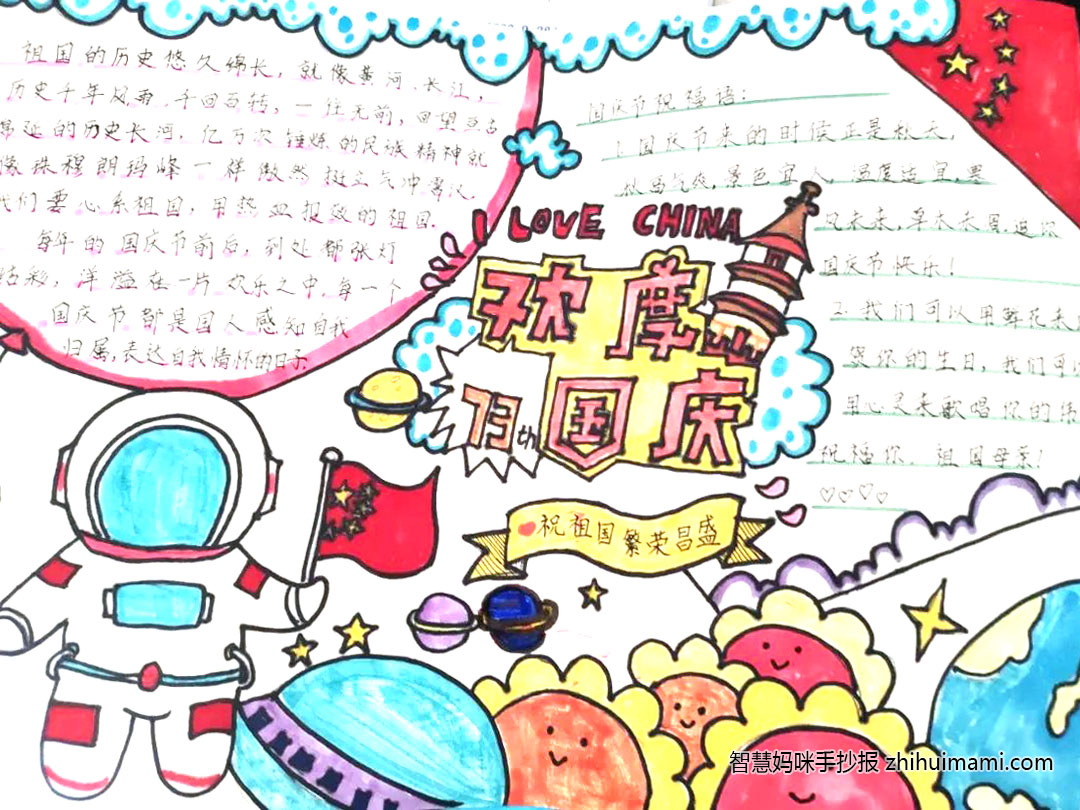 祖国的历史悠久绵长，就像黄河、长江，
历史千年风雨、千回百转，一往无前，回望亘古
绵延的历史长河，亿万次锤炼的民族精神就
像珠穆朗玛峰一样傲然挺立气冲霄汉，
我们要心系祖国，用热血报效的祖国.
每年的国庆节前后，到处都张灯
结彩，洋溢在一片欢乐之中，每一个
国庆节都是国人感知自我
归属，表达自我情怀的日子.
国庆节祝福语：
1.国庆节来的时候正是秋天，
秋高气爽，景色宜人，温度适宜，
风未来，草木未凋，
国庆节快乐！
2.我们可以用鲜花来
你的生日，我们可以
用心灵来歌唱你的伟
祝福你，祖国母亲！
I LOVE CHINA
欢度
73th国庆
祝祖国繁荣昌盛
智慧妈咪手抄报 zhihuimami.com